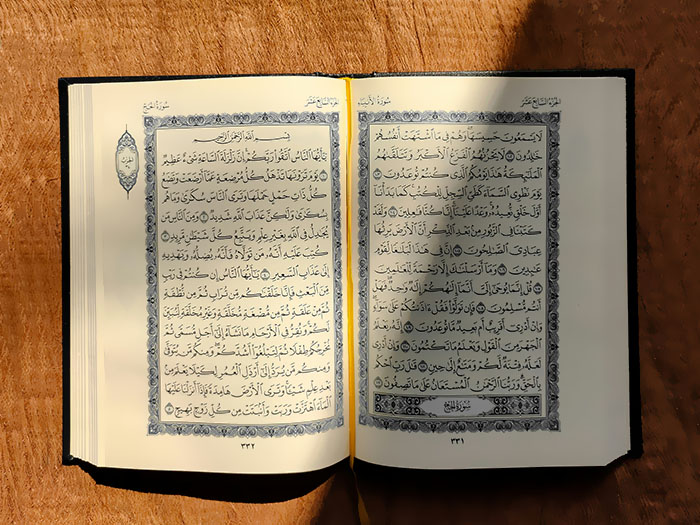 الجزء السابع عشر
سُورَةُ الأَنبِيَاءِ
لَا يَسْمَعُونَ حَسِيسَهَا ۖ وَهُمْ فِى مَا ٱشْتَهَتْ أَنفُسُهُمْ
خَٰلِدُونَ ١٠٢ لَا يَحْزُنُهُمُ ٱلْفَزَعُ ٱلْأَكْبَرُ وَتَتَلَقَّىٰهُمُ
ٱلْمَلَٰٓئِكَةُ هَٰذَا يَوْمُكُمُ ٱلَّذِى كُنتُمْ تُوعَدُونَ ١٠٣
يَوْمَ نَطْوِى ٱلسَّمَآءَ كَطَىِّ ٱلسِّجِلِّ لِلْكُتُبِ ۚ كَمَا بَدَأْنَآ
أَوَّلَ خَلْقٍ نُّعِيدُهُۥ ۚ وَعْدًا عَلَيْنَآ ۚ إِنَّا كُنَّا فَٰعِلِينَ ١٠٤ وَلَقَدْ
كَتَبْنَا فِى ٱلزَّبُورِ مِنۢ بَعْدِ ٱلذِّكْرِ أَنَّ ٱلْأَرْضَ يَرِثُهَا
عِبَادِىَ ٱلصَّٰلِحُونَ ١٠٥ إِنَّ فِى هَٰذَا لَبَلَٰغًا لِّقَوْمٍ
عَٰبِدِينَ ١٠٦ وَمَآ أَرْسَلْنَٰكَ إِلَّا رَحْمَةً لِّلْعَٰلَمِينَ
١٠٧ قُلْ إِنَّمَا يُوحَىٰٓ إِلَىَّ أَنَّمَآ إِلَٰهُكُمْ إِلَٰهٌ وَٰحِدٌ ۖ فَهَلْ
أَنتُم مُّسْلِمُونَ ١٠٨ فَإِن تَوَلَّوْا۟ فَقُلْ ءَاذَنتُكُمْ عَلَىٰ سَوَآءٍ ۖ
وَإِنْ أَدْرِىٓ أَقَرِيبٌ أَم بَعِيدٌ مَّا تُوعَدُونَ ١٠٩ إِنَّهُۥ يَعْلَمُ
ٱلْجَهْرَ مِنَ ٱلْقَوْلِ وَيَعْلَمُ مَا تَكْتُمُونَ ١١٠ وَإِنْ أَدْرِى
لَعَلَّهُۥ فِتْنَةٌ لَّكُمْ وَمَتَٰعٌ إِلَىٰ حِينٍ ١١١ قَٰلَ رَبِّ ٱحْكُم
بِٱلْحَقِّ ۗ وَرَبُّنَا ٱلرَّحْمَٰنُ ٱلْمُسْتَعَانُ عَلَىٰ مَا تَصِفُونَ ١١٢
سُورَةُ الحَجِّ
٣٣١
الجزء السابع عشر
سُورَةُ الحَجِّ
الحزب
بِسْمِ ٱللَّهِ ٱلرَّحْمَٰنِ ٱلرَّحِيمِ
يَٰٓأَيُّهَا ٱلنَّاسُ ٱتَّقُوا۟ رَبَّكُمْ ۚ إِنَّ زَلْزَلَةَ ٱلسَّاعَةِ شَىْءٌ عَظِيمٌ
١ يَوْمَ تَرَوْنَهَا تَذْهَلُ كُلُّ مُرْضِعَةٍ عَمَّآ أَرْضَعَتْ وَتَضَعُ
كُلُّ ذَاتِ حَمْلٍ حَمْلَهَا وَتَرَى ٱلنَّاسَ سُكَٰرَىٰ وَمَا هُم
بِسُكَٰرَىٰ وَلَٰكِنَّ عَذَابَ ٱللَّهِ شَدِيدٌ ٢ وَمِنَ ٱلنَّاسِ مَن
يُجَٰدِلُ فِى ٱللَّهِ بِغَيْرِ عِلْمٍ وَيَتَّبِعُ كُلَّ شَيْطَٰنٍ مَّرِيدٍ ٣
كُتِبَ عَلَيْهِ أَنَّهُۥ مَن تَوَلَّاهُ فَأَنَّهُۥ يُضِلُّهُۥ وَيَهْدِيهِ
إِلَىٰ عَذَابِ ٱلسَّعِيرِ ٤ يَٰٓأَيُّهَا ٱلنَّاسُ إِن كُنتُمْ فِى رَيْبٍ
مِّنَ ٱلْبَعْثِ فَإِنَّا خَلَقْنَٰكُم مِّن تُرَابٍ ثُمَّ مِن نُّطْفَةٍ
ثُمَّ مِنْ عَلَقَةٍ ثُمَّ مِن مُّضْغَةٍ مُّخَلَّقَةٍ وَغَيْرِ مُخَلَّقَةٍ لِّنُبَيِّنَ
لَكُمْ ۚ وَنُقِرُّ فِى ٱلْأَرْحَامِ مَا نَشَآءُ إِلَىٰٓ أَجَلٍ مُّسَمًّى ثُمَّ
نُخْرِجُكُمْ طِفْلًا ثُمَّ لِتَبْلُغُوٓا۟ أَشُدَّكُمْ ۖ وَمِنكُم مَّن يُتَوَفَّىٰ
وَمِنكُم مَّن يُرَدُّ إِلَىٰٓ أَرْذَلِ ٱلْعُمُرِ لِكَيْلَا يَعْلَمَ مِنۢ
بَعْدِ عِلْمٍ شَيْـًٔا ۚ وَتَرَى ٱلْأَرْضَ هَامِدَةً فَإِذَآ أَنزَلْنَا عَلَيْهَا
ٱلْمَآءَ ٱهْتَزَّتْ وَرَبَتْ وَأَنۢبَتَتْ مِن كُلِّ زَوْجٍۭ بَهِيجٍ ٥
٣٣٢